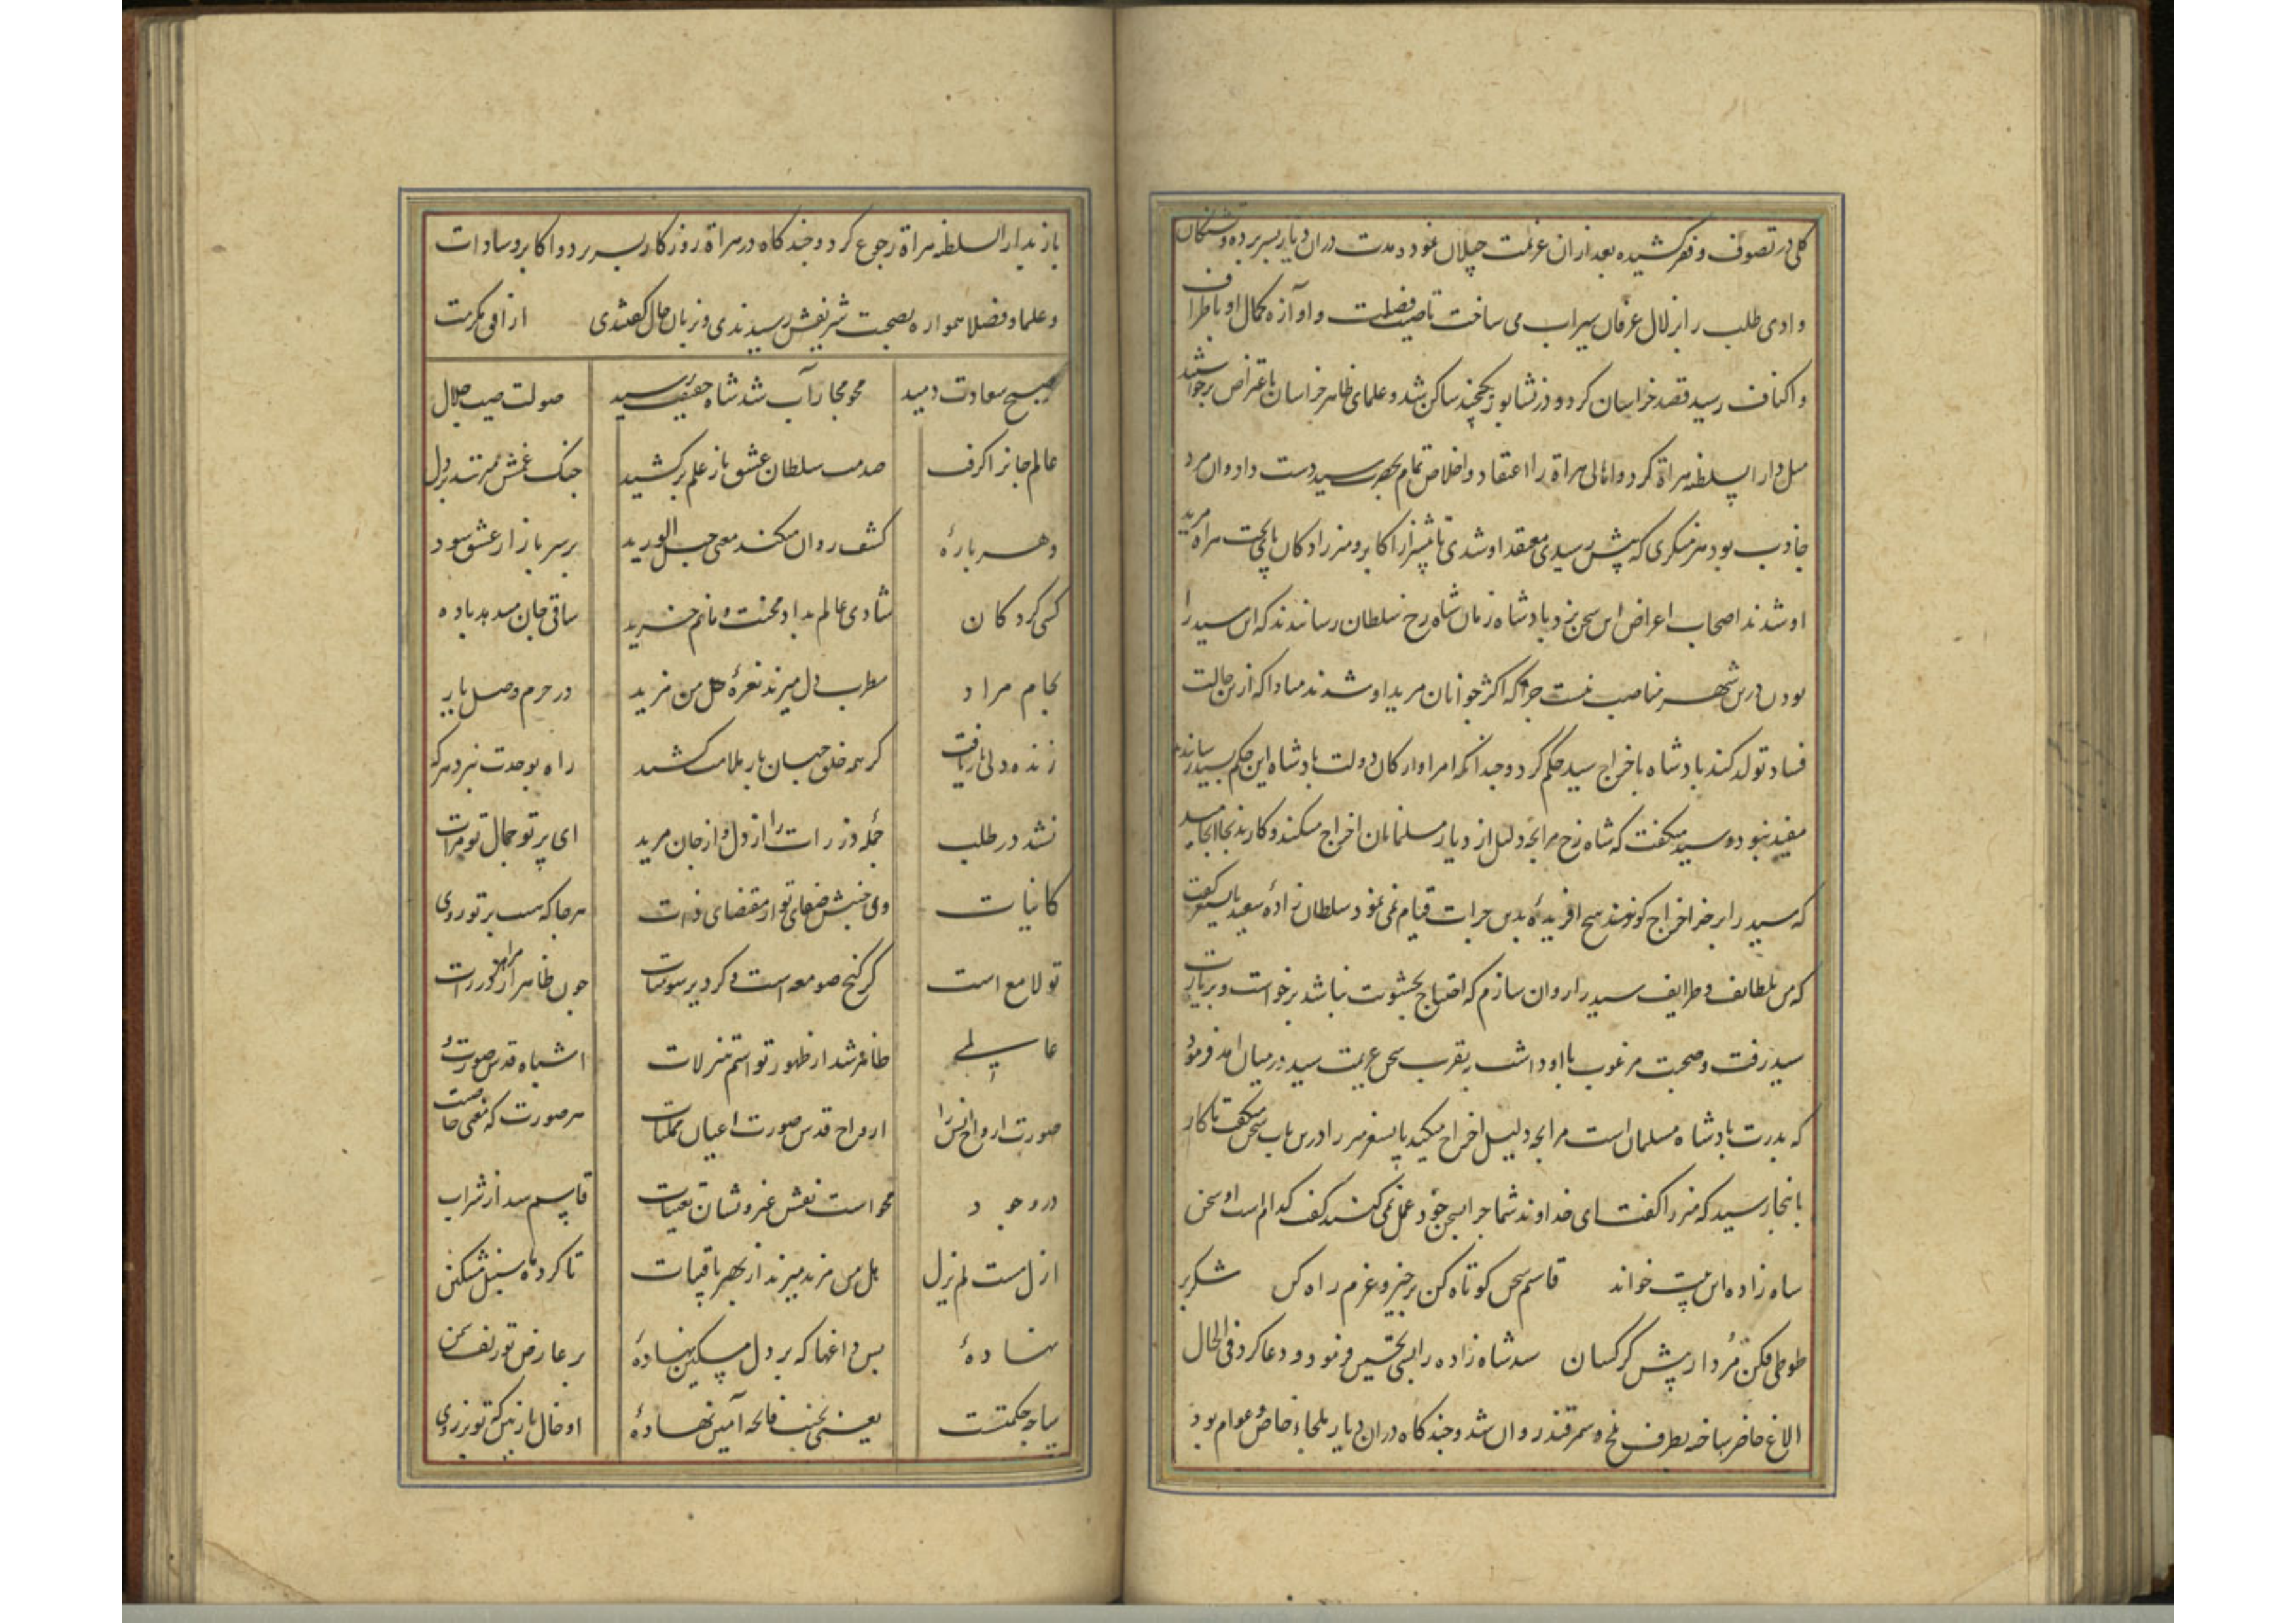 کلی در تصوف و فقر کشیده بعد از ان عزیمت جیلان نمود و مدت دران دیار بسر برده و تشنکان
وادی طلب را بزلال عرفان سیراب می ساخت تا صیت فضیلت و اوازه کمال او باطراف
و اکناف رسید قصد خراسان کرد و در نشابور یکچند ساکن شد و علمای ظاهر خراسان باعتراض برخواستند
میل دار السلطنه هراة کرد و اهالی هراة را اعتقاد و اخلاص تمام بحضرت سید دست داد و ان مرد
جاذب بود هر منکری که پیش رسیدی معتقد او شدی تا بیشتر از اکابر و میرزادکان پای تخت هراة مرید
او شدند اصحاب اعراض این سخن نزد بادشاه زمان شاه رخ سلطان رساندند که این سید را
بودن درین شهر مناصب نیست چرا که اکثر جوانان مرید او شدند مبادا که ازین حالت
فساد تولد کند بادشاه باخراج سید حکم کرد و چندانکه امرا و ارکان دولت بادشاه این حکم بسید رسانیدند
مفید نبود و سید میکفت که شاه رخ مرا بچه دلیل از دیار مسلمانان اخراج میکند و کار بدنجا انجامید
که سید را بزجر اخراج کنند هیچ افریدهٔ بدین جرات قیام نمی نمود سلطان زادهٔ سعید بایسنغر کفت
که من بلطایف و ظرایف سید را روان سازم که احتیاج بخشونت نباشد برخواست و بزیارت
سید رفت و صحبت مرغوب با او داشت بتقریب سخن عزیمت سید در میان امد فرمود
که بدرت بادشاه مسلمان است مرا بچه دلیل اخراج میکند بایسنغر میرزا درین باب سخن میکفت تا کار
بانجا رسید که میرزا کفت ای خداوند شما چرا بسخن خود عمل نمی کنید کفت کدام است او سخن
شاه زاده این بیت خواند قاسم سخن کوتاه کن برخیز و عزم راه کن شکر بر
طوطی فکن مردار پیش کرکسان سید شاه زاده را بسی تحسین فرمود و دعا کرد فی الحال
الاغ حاضر ساخته بطرف بلخ و سمرقند روان شد و چند کاه دران دیار ملجاء خاص و عوام بود
باز بدار السلطنه هراة رجوع کرد و چند کاه در هراة روزکار بسر برد و اکابر و سادات
و علما و فضلا همواره بصحبت شریفش رسیدندی و بزبان حال کفتندی از افق مکرمت
صبح سعادت دمید محو مجازات شد شاه حقیقت رسید صولت صیت جلال
عالم جانرا کرفت صدمت سلطان عشق باز علم برکشید چنک غمش میزند بر دل
و هر بارهٔ کشف روان میکند معنی حبل الورید بر سر بازار عشق سود
کسی کرد کان شادی عالم بداد محنت و ماتم خرید ساقی جان میدهد باده
بجام مراد مطرب دل میزند نعرهٔ هل من مزید در حرم وصل یار
زنده دلی بار یافت کز همه خلق جهان بار ملامت کشید راه بوحدت نبرد هرکه
نشد در طلب جمله ذرات را از دل و از جان مرید ای پرتو جمال تو مرات
کاینات وی جنبش صفای تو از مقتضای ذات هر جا که هست پرتو روی
تو لامع است کر کنج صومعه است و کر دیر سومنات
ظاهر شد از ظهور تو اسم تنزلات اشباه قدس صورت
صورت ارواح انس را ارواح قدس صورت اعیان ممکنات هر صورت که معنی خاصست
در وجود محو است نقش غیر و نشان تعینات قاسم شد از شراب
ازل مست لم یزل هل من مزید میزند از بهر باقیات تا کرد ماه سنبل مشکین
نهادهٔ بس داغها که بر دل مسکین نهادهٔ بر عارض تو زلف
سیاه حکمتست یعنی بجنب فاتحه آمین نهادهٔ او خال نازنین که تو بر روی